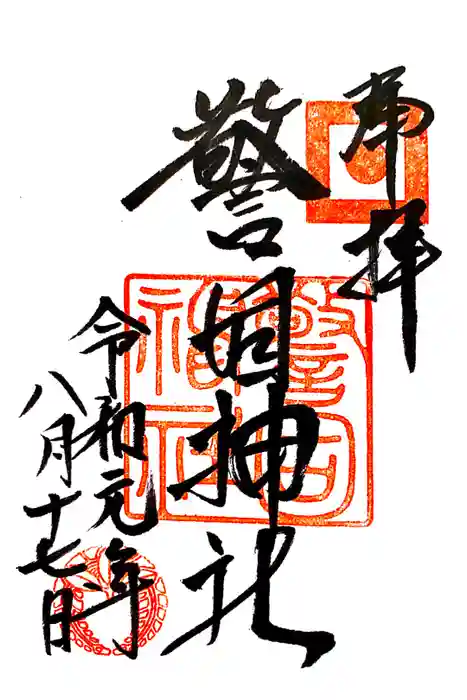 奉拝
警固神社
令和元年
八月十七日